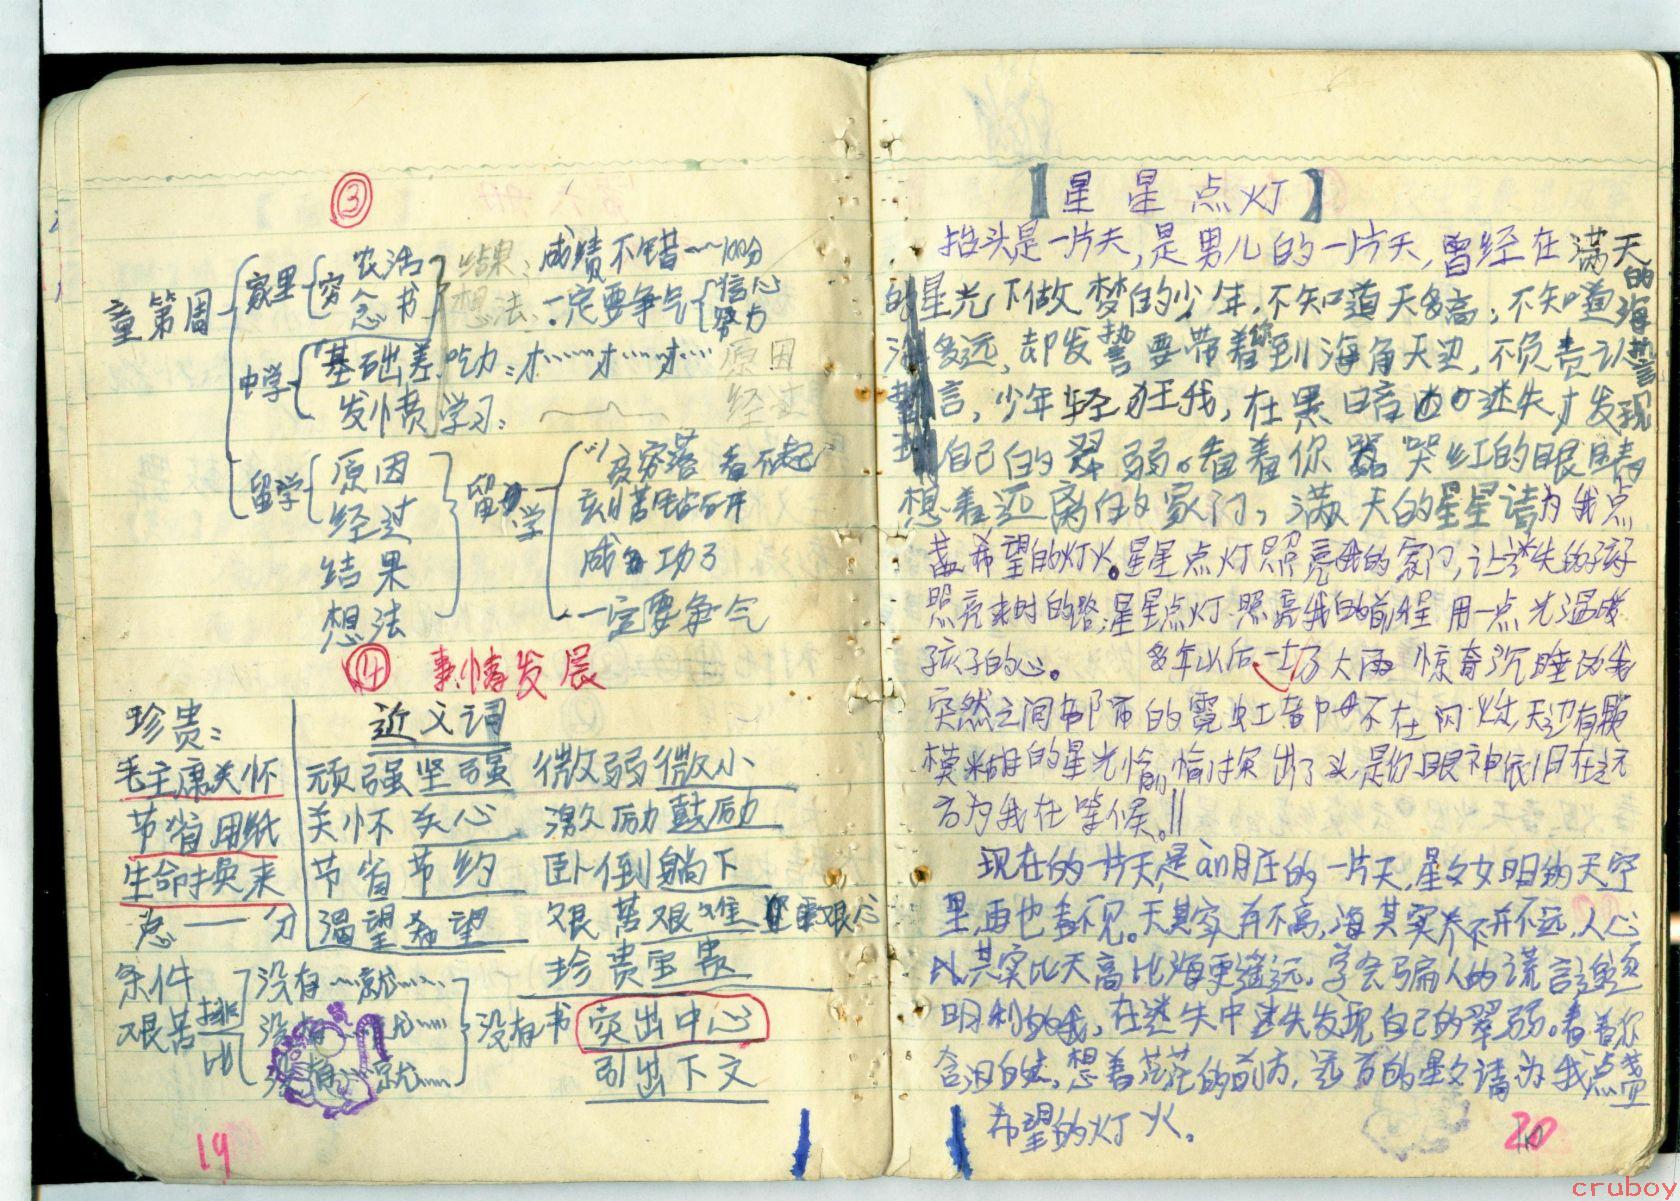 ③
童第周 家里 穷 农活 念书 结果：成绩不错……100分
想法：一定要争气 信心 努力
中学 基础差吃力：才……才……才…… 原因
发愤学习： 经过
留学 原因 经过 结果 想法
留学 穷 落 看不起
刻苦钻研
成功了
一定要争气
④ 事情发展
珍贵：
毛主席关怀
节省用纸
生命换来
总——分
近义词
顽强坚强 微弱微小
关怀关心 激励鼓励
节省节约 卧倒躺下
渴望希望 艰苦艰难
珍贵宝贵
条件艰苦 排比 没有……就…… 没有书 突出中心
引出下文
19
【星星点灯】
抬头是一片天，是男儿的一片天，曾经在满天
的星光下做梦的少年，不知道天多高，不知道海
多远，却发誓要带着你到海角天边，不负责认誓
言，少年轻狂我，在黑暗迷失才发现
自己的翠弱。看着你哭红的眼睛
想着远离的家门，满天的星星请为我点
盏希望的灯火。星星点灯照亮我的家门，让迷失的孩子
照亮来时的路，星星点灯照亮我的前程用一点光温暖
孩子的心。 多年以后一场大雨惊奇沉睡的我
突然之间都市的霓虹都不在闪烁天边有颗
模糊的星光悄悄探出了头是你眼神依旧在远
方为我在等候。||
现在的一片天，是àn月庄的一片天，星文文明的天空
里，再也看不见。天其实并不高，海其实并不远，人心
其实比天高比海更遥远。学会骗人的谎言追逐
明利的我，在迷失中迷失发现自己的翠弱。看着你
含泪的，想着茫茫的前方，远方的星文请为我点盏
希望的灯火。
20
cruboy